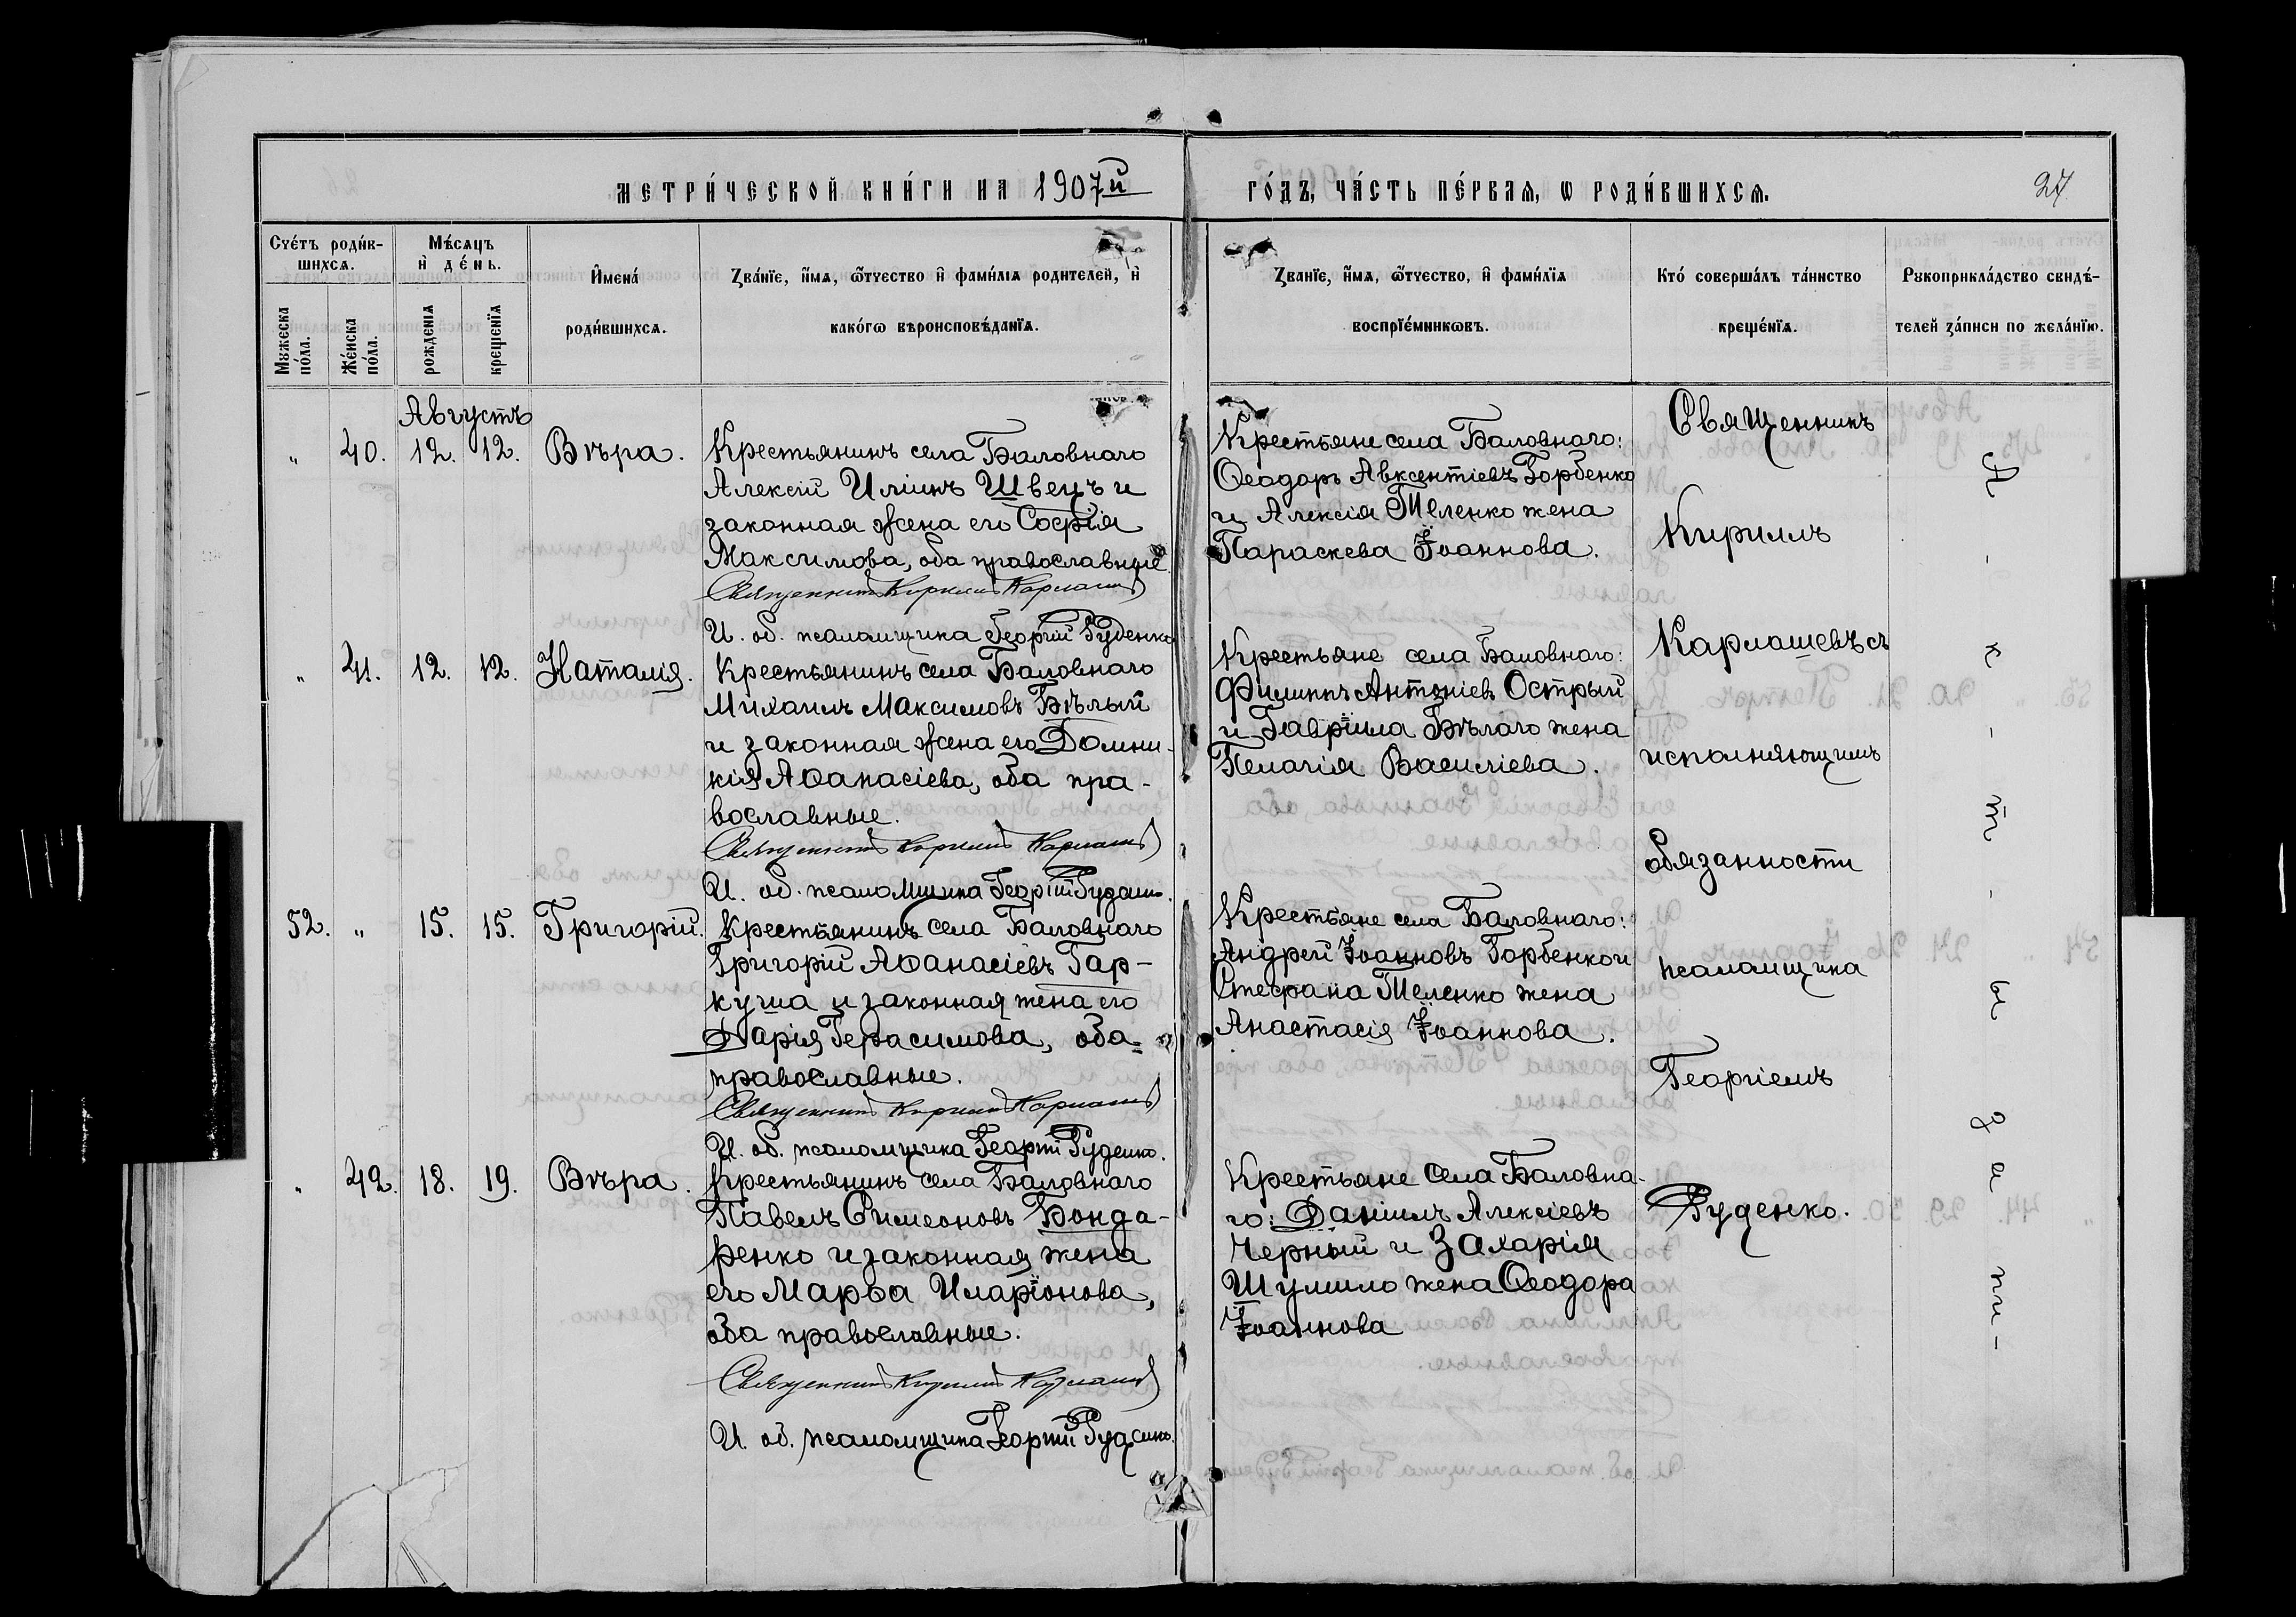 МЕТРИ́ЧЕСКОЙ КНИ́ГИ НА 1907й ГО́ДЪ, ЧА́СТЬ ПЕ́РВАЯ, Ѡ РОДИ́ВШИХСЯ.
27
Сче́тъ роди́в-
шихся.
Мꙋжеска по́ла.
Же́нска по́ла.
Мѣ́сяцъ
и҆ де́нь.
рожденїѧ
крещенїѧ
И҆мена́
роди́вшихся.
Зва́нїе, и҆́мѧ, ѻ҆́тчество и҆ фами́лїѧ родителей, и҆
како́гѡ вѣроисповѣ́данїѧ.
Зва́нїе, и҆́мѧ, ѻ҆́тчество, и҆ фами́лїѧ
воспрїе́мникѡвъ.
Кто́ соверша́лъ та́инство
креще́нїѧ.
Рꙋкоприкла́дство свидѣ́-
телей за́писи по жела́нїю.
Августъ
" 40. 12. 12. Вѣра.
Крестьянинъ села Баловнаго
Алексій Иліинъ Швецъ и
законная жена его Софія
Максимова, оба православные.
Священникъ Кирилъ Карлаш
И. об. псаломщика Георгій Руденко
Крестьяне села Баловнаго:
Ѳеодоръ Авксентіевъ Горбенко
и Алексія Теленко жена
Параскева Іоаннова.
" 41. 12. 12. Наталія.
Крестьянинъ села Баловнаго
Михаилъ Максимовъ Бѣлый
и законная жена его Домни-
кія Аѳанасіева, оба пра-
вославные.
Священникъ Кирилъ Карлаш
И. об. псаломщика Георгій Руденко.
Крестьяне села Баловнаго:
Филиппъ Антоніевъ Острый
и Гавріила Бѣлаго жена
Пелагія Василіева.
52. " 15. 15. Григорій.
Крестьянинъ села Баловнаго
Григорій Аѳанасіевъ Гар-
куша и законная жена его
Дарія Герасимова, оба
православные.
Священникъ Кирилъ Карлаш
И. об. псаломщика Георгій Руденко.
Крестьяне села Баловнаго:
Андрей Іоанновъ Горбенко и
Стефана Теленко жена
Анастасія Іоаннова.
" 42. 18. 19. Вѣра.
Крестьянинъ села Баловнаго
Павелъ Симеоновъ Бонда-
ренко и законная жена
его Марѳа Иларіонова,
оба православные.
Священникъ Кирилъ Карлаш
И. об. псаломщика Георгій Руденко.
Крестьяне села Баловна-
го: Даніилъ Алексіевъ
Черный и Захарія
Шумило жена Ѳеодора
Іоаннова
Священникъ
Кириллъ
Карлашевъ съ
исполняющимъ
обязанности
псаломщика
Георгіемъ
Руденко.
А - к - т - ы за пи -